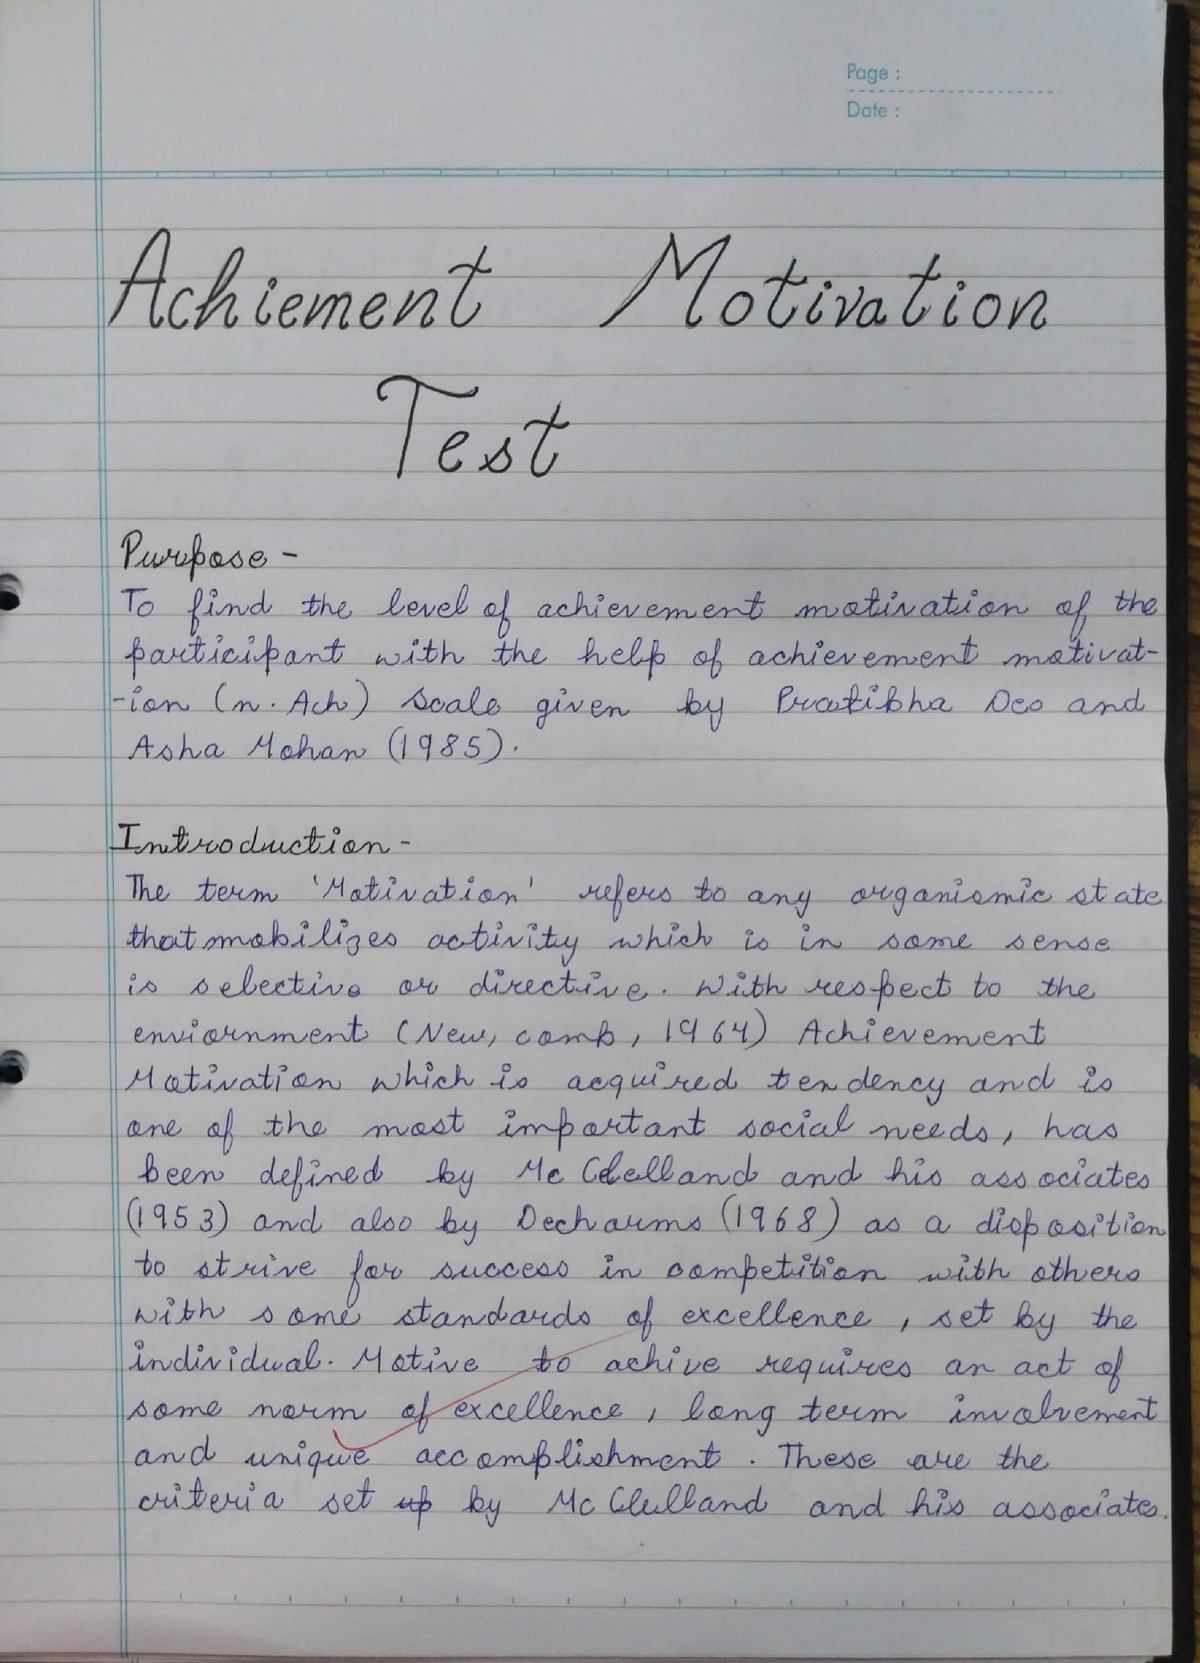 Page :
Date :
Achiement Motivation
Test
Purpose -
To find the level of achievement motivation of the
participant with the help of achievement motivat-
-ion (n. Ach) scale given by Pratibha Deo and
Asha Mohan (1985).
Introduction -
The term 'Motivation' refers to any organismic state
that mobilizes activity which is in some sense
is selective or directive. With respect to the
enviornment (New, comb, 1964) Achievement
Motivation which is acquired tendency and is
one of the most important social needs, has
been defined by Mc Clelland and his associates
(1953) and also by Decharms (1968) as a disposition
to strive for success in competition with others
with some standards of excellence, set by the
individual. Motive to achive requires an act of
some norm of excellence, long term involvement
and unique accomplishment. These are the
criteria set up by Mc Clelland and his associates.